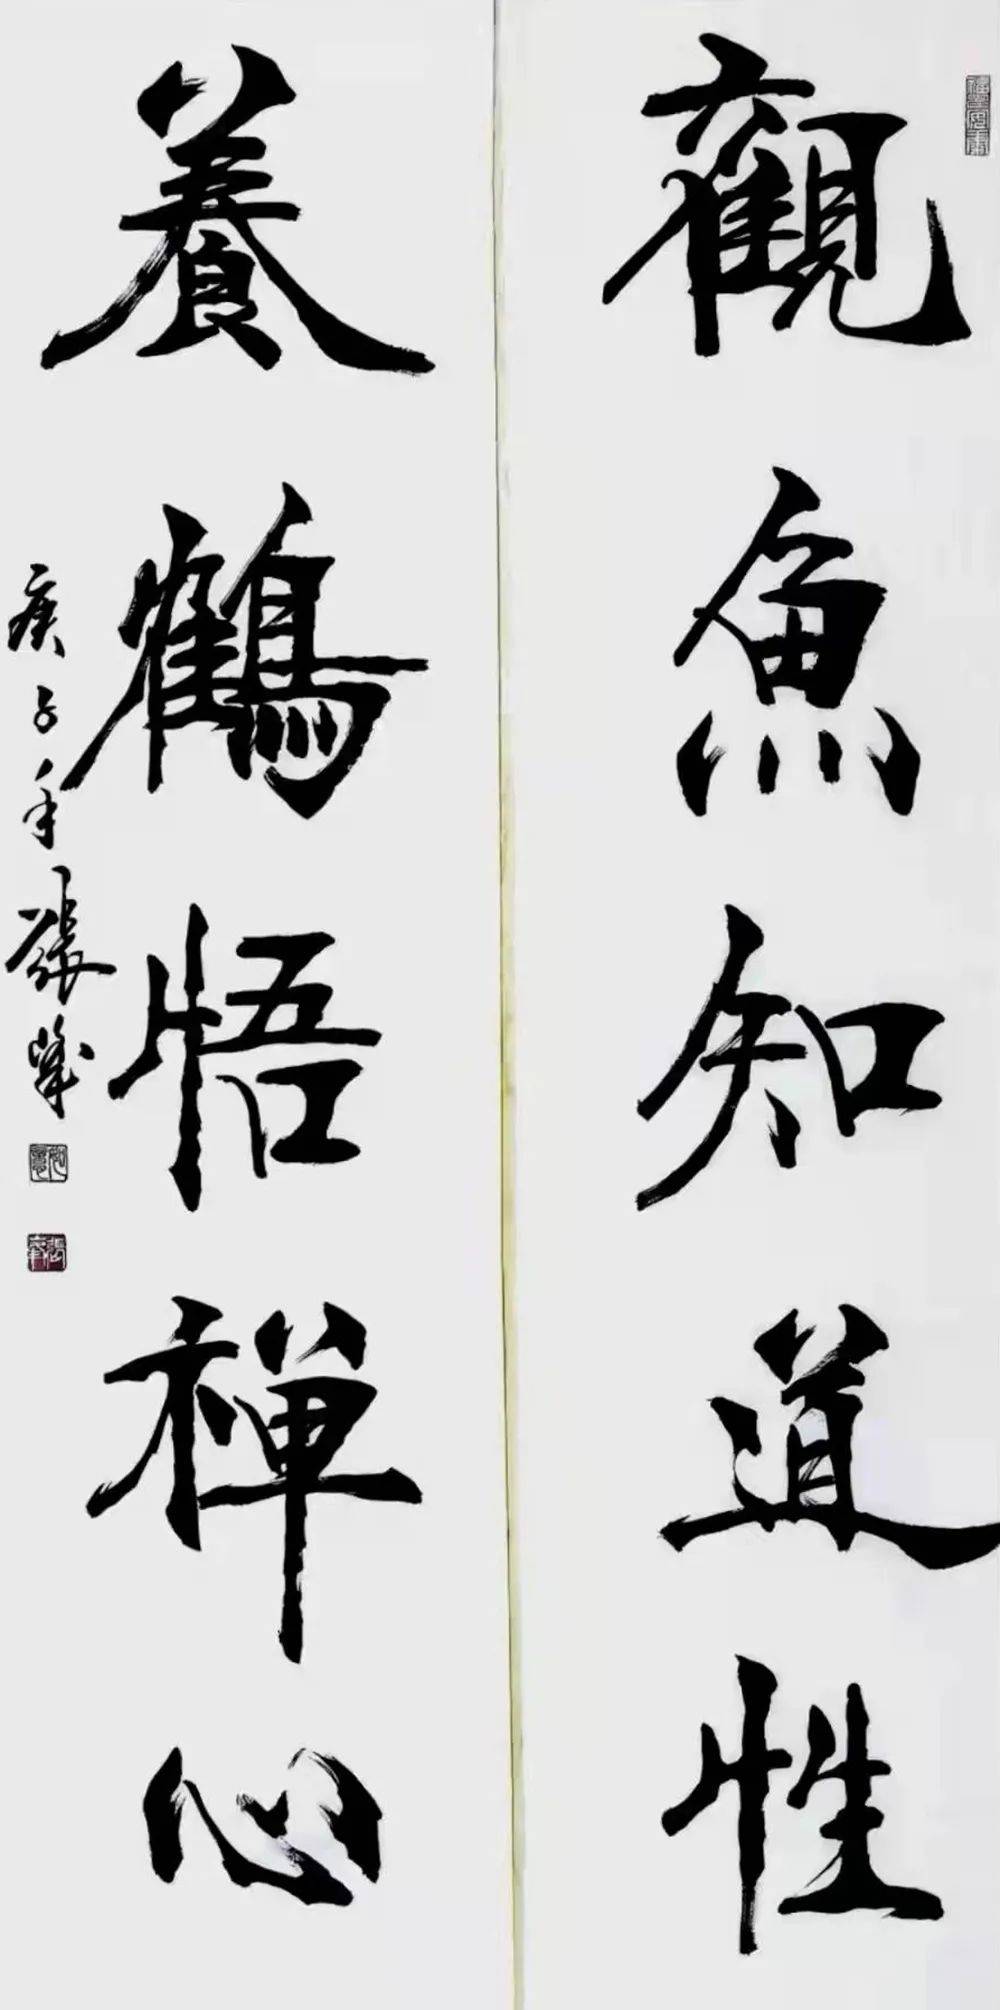 觀魚知道性
養鶴悟禪心
庚子年張峰